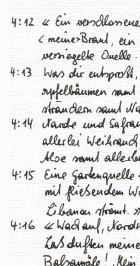 4:12 « Ein verschlossene
‹ meine Braut, ein
versiegelte Quelle.
4:13 Was dir entsproßt,
apfelbäumen samt
sträuchern samt Na
4:14 Narde und Safran
allerlei Weihrauch
Aloe samt allerle
4:15 Eine Gartenquelle
mit fließendem Wa
Libanon strömt. »
4:16 « Wach auf, Nordw
Laß duften meine
Balsamöle! Mein